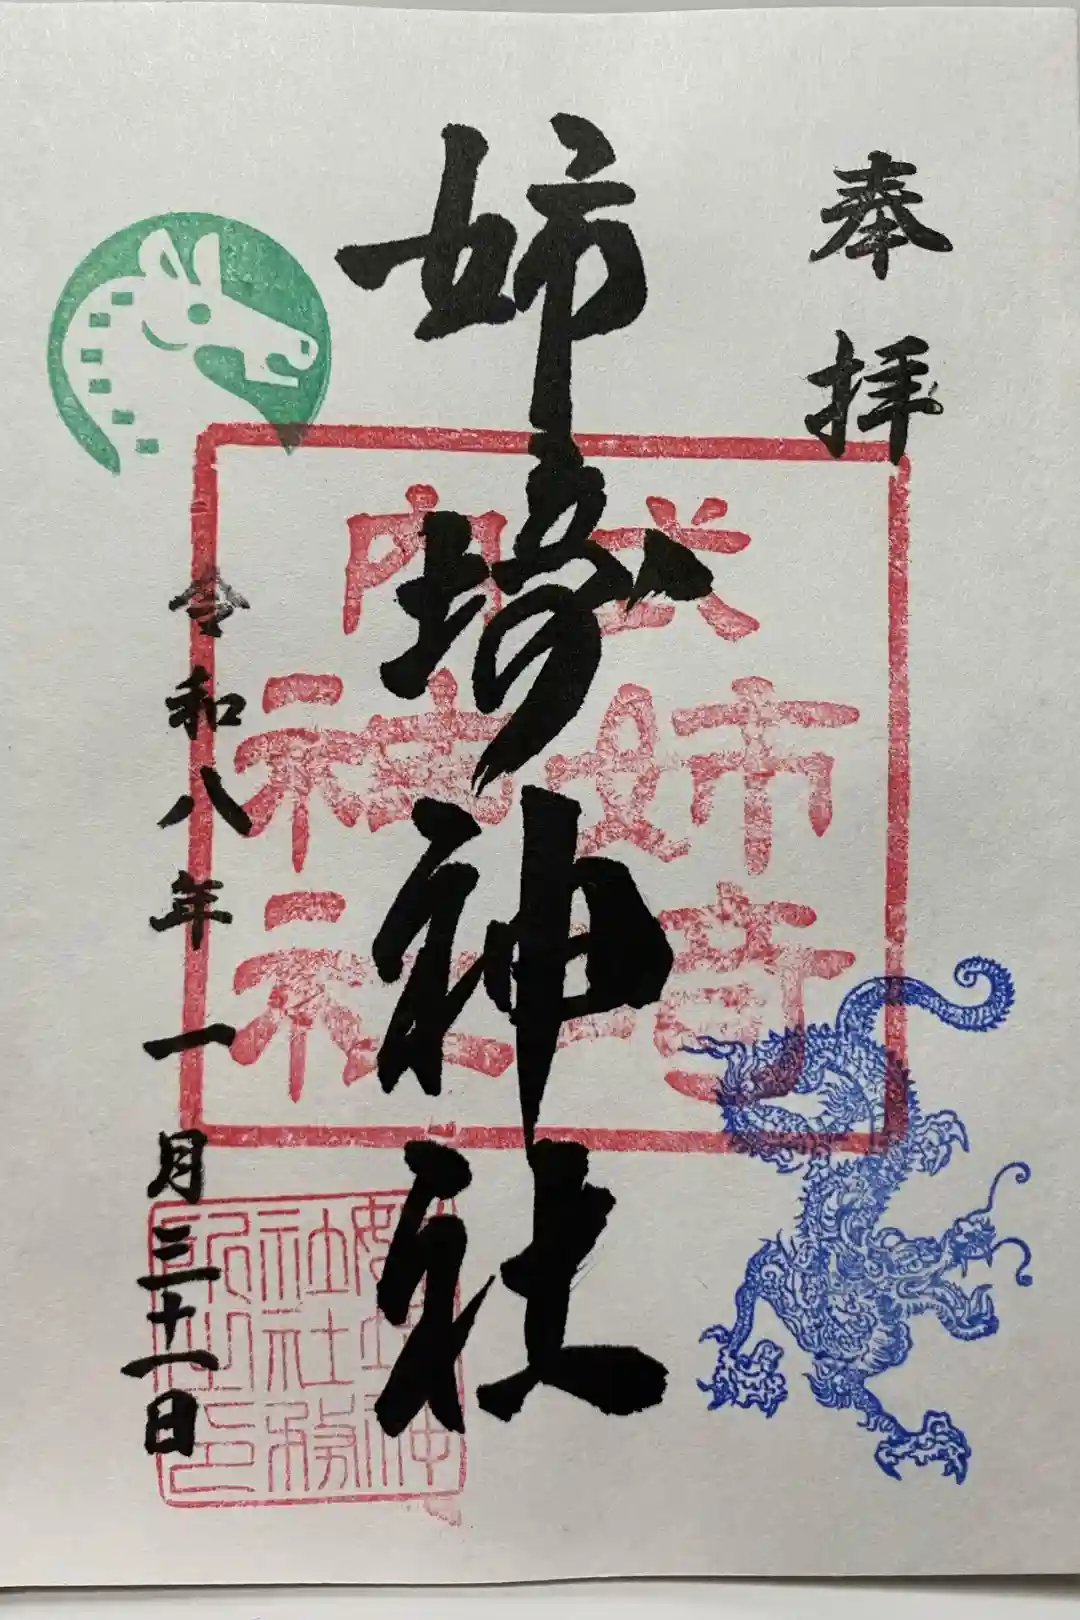 奉拝
姉埼神社
令和八年一月三十一日
式内
姉埼
神社
姉埼神
社社務
所之印